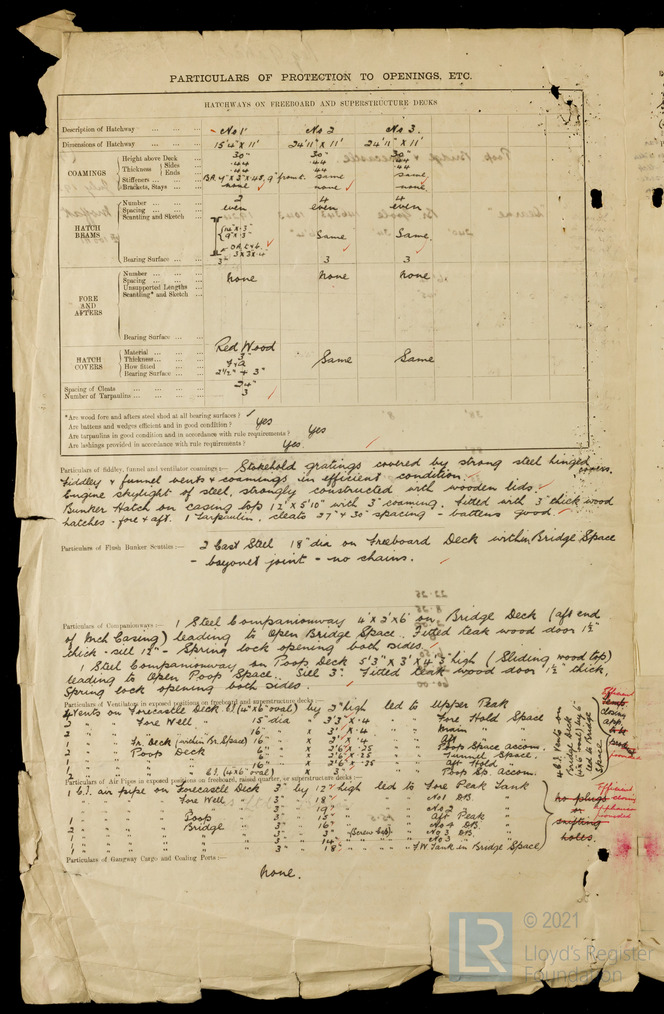 PARTICULARS OF PROTECTION TO OPENINGS, ETC.
HATCHWAYS ON FREEBOARD AND SUPERSTRUCTURE DECKS
Description of Hatchway ... ... ... No 1 No 2 No 3
Dimensions of Hatchway ... ... ... 15'4" x 11' 24'11" x 11' 24'11" x 11'
COAMINGS
Height above Deck 30" 30" 30
Thickness { Sides .44 .44 .44
Ends .44 .44 .44
Stiffeners ... ... B.A. 7" x 3" x .48, 9" front. same same
Brackets, Stays ... ... none none none
HATCH BEAMS
Number ... ... ... 2 4 4
Spacing ... ... ... even even even
Scantling and Sketch Same Same
Bearing Surface ... ... 3" 3 3
FORE AND AFTERS
Number ... ... ... none none none
Spacing ... ... ...
Unsupported Lengths
Scantling* and Sketch ...
Bearing Surface ... ...
HATCH COVERS
Material ... ... ... Red Wood
Thickness ... ... ... 3" Same Same
How fitted ... ... F & A
Bearing Surface ... ... 2½" + 3"
Spacing of Cleats ... ... ... 24"
Number of Tarpaulins ... ... ... 3
*Are wood fore and afters steel shod at all bearing surfaces ?
Are battens and wedges efficient and in good condition ? Yes
Are tarpaulins in good condition and in accordance with rule requirements ? Yes
Are lashings provided in accordance with rule requirements ? Yes.
Particulars of fiddley, funnel and ventilator coamings :— Stokehold gratings covered by strong steel hinged covers.
Fiddley & funnel vents & coamings in efficient condition.
Engine skylight of steel, strongly constructed with wooden lids.
Bunker Hatch on casing top 12' x 5'10" with 3" coaming. Fitted with 3" thick wood
hatches - fore & aft. 1 Tarpaulin, cleats 27" & 30" spacing - battens good.
Particulars of Flush Bunker Scuttles :— 2 Cast Steel 18" dia on Freeboard Deck within Bridge Space
- bayonet joint - no chains.
Particulars of Companionways :— 1 Steel Companionway 4' x 2' x 6' on Bridge Deck (aft end
of Mch Casing) leading to Open Bridge Space. Fitted teak wood door 1½"
thick - sill 12" - Spring lock opening both sides.
1 Steel Companionway on Poop Deck 5'3" x 3' x 4'3" high (Sliding wood top)
leading to Open Poop Space. Sill 3". Fitted teak wood door 1½" thick,
Spring lock opening both sides.
Particulars of Ventilators in exposed positions on freeboard and superstructure decks :—
4 Vents on Forecastle Deck (4 x 6" oval) by 2" high led to Upper Peak
2 " " Fore Well 15" dia x 3'3" x .4 " " Fore Hold Space
2 " " " 16" x 3' x .4 " " Main "
1 " " Fr. Deck (within Br. Space) 16" x 3' x .4 " " Aft "
" " Poop Deck 6" x 2'6" x .25 " " Poop Space accom.
" " " 6" x 2'6" x .25 " " Tunnel Space.
" " " 16" x 3'6" x .25 " " Aft Hold "
" " " C.I. (4 x 6" oval) x " " Poop Sp. accom.
4 C.I. Vents on Bridge Deck (4 x 6" oval) by 6" led to Bridge Space
Efficient closing app. provided
Particulars of Air Pipes in exposed positions on freeboard, raised quarter, or superstructure decks :—
1 C.I. air pipe on Forecastle Deck 3" by 12" high led to Fore Peak Tank
" " " Fore Well 3" 18" " No 1 D.B.
" " " " 3" 19" " No 2 "
1 " " Poop 3" 15" " Aft Peak "
2 " " Bridge 3" 16" " No 4 D.B.
1 " " " 3" 3" (Screw top) " No 3 D.B.
1 " " " 3" 14" " No 3 "
1 " " " 3" 18" " F.W. Tank in Bridge Space
no plugs or snifting holes.
Efficient closing appliances provided
Particulars of Gangway Cargo and Coaling Ports :—
None.
LR
© 2021
Lloyd's Register
Foundation